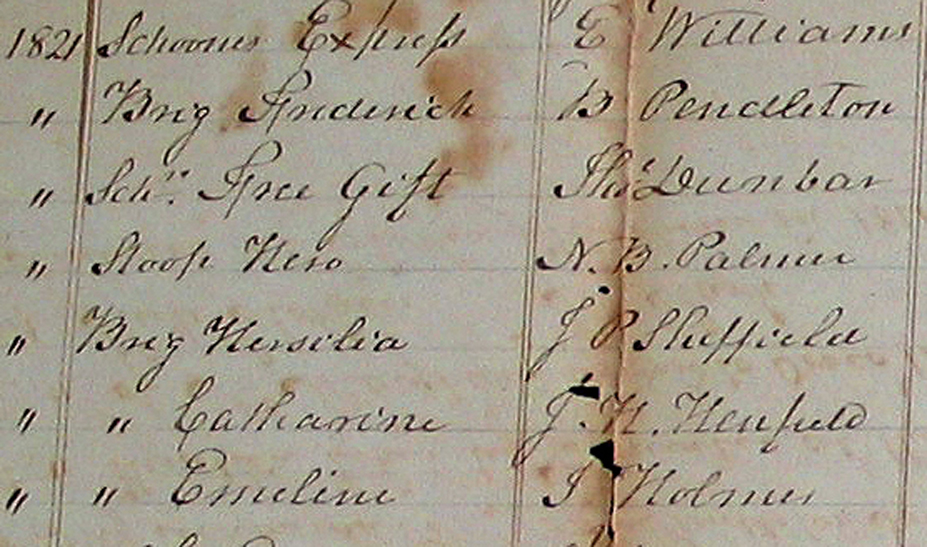 1821 Schooner Express E Williams
" Brig Frederick B Pendleton
" Schr. Free Gift Thos Dunbar
" Sloop Hero N. B. Palmer
" Brig Hersilia J P Sheffield
" " Catharine J. H. Henfield
" " Emeline J Holmes